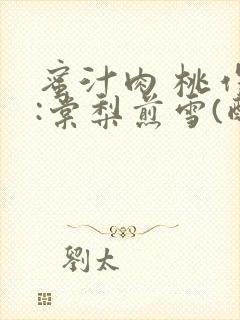 蜜汁肉桃作
:棠梨煎雪(酥
劉太